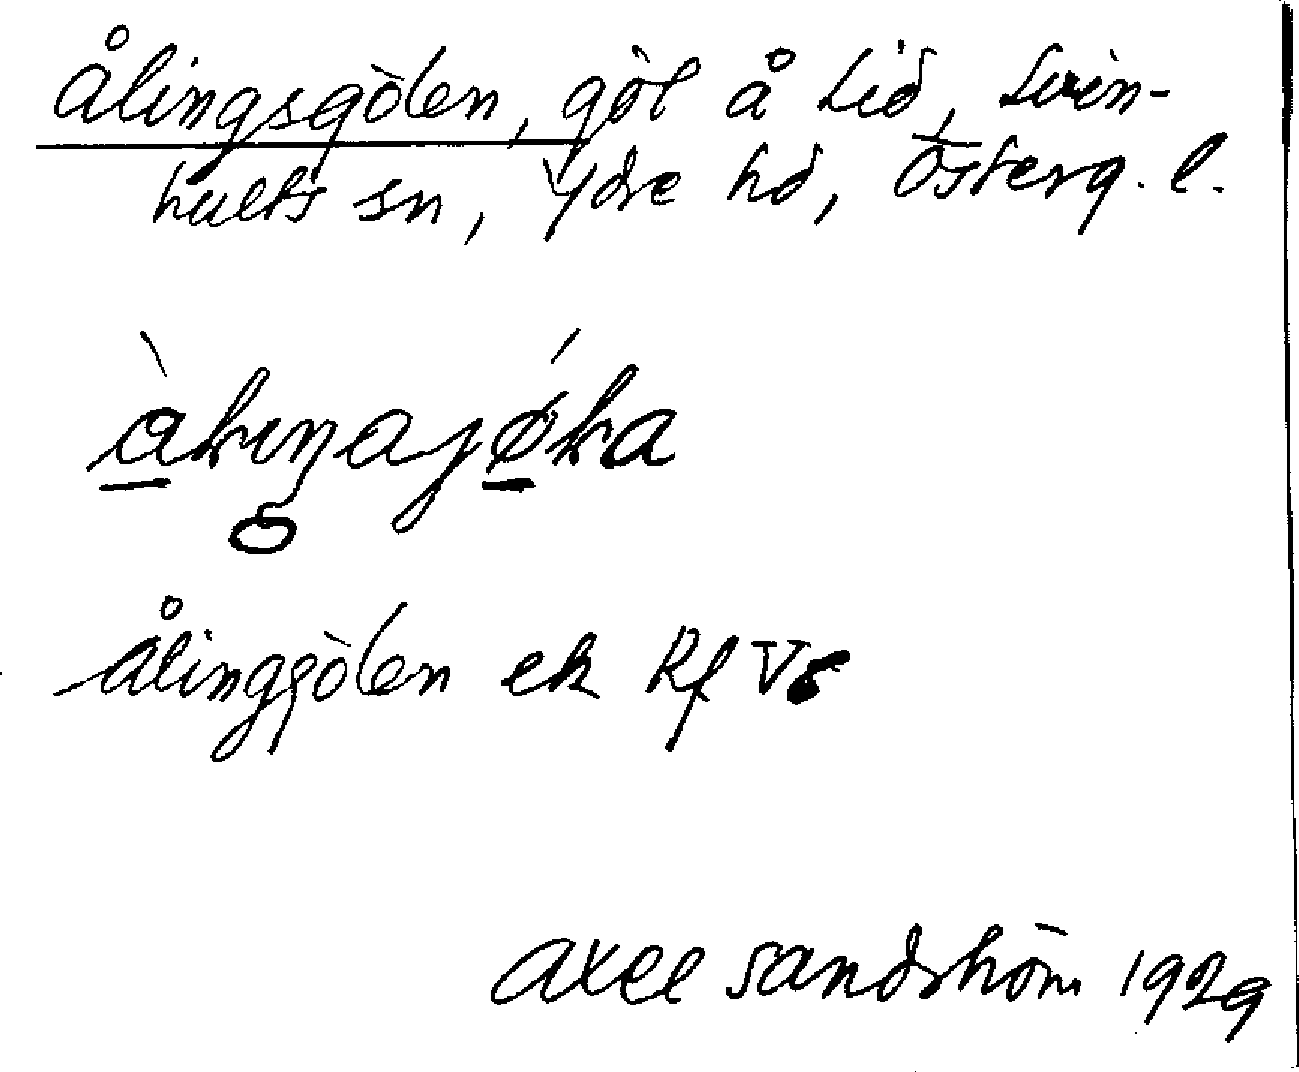 Ålingsgölen, göl å Lid, Svin-
hults sn, Ydre hd, Österg. l.
Ålinggölen ek Rf V
Axel Sandström 1929